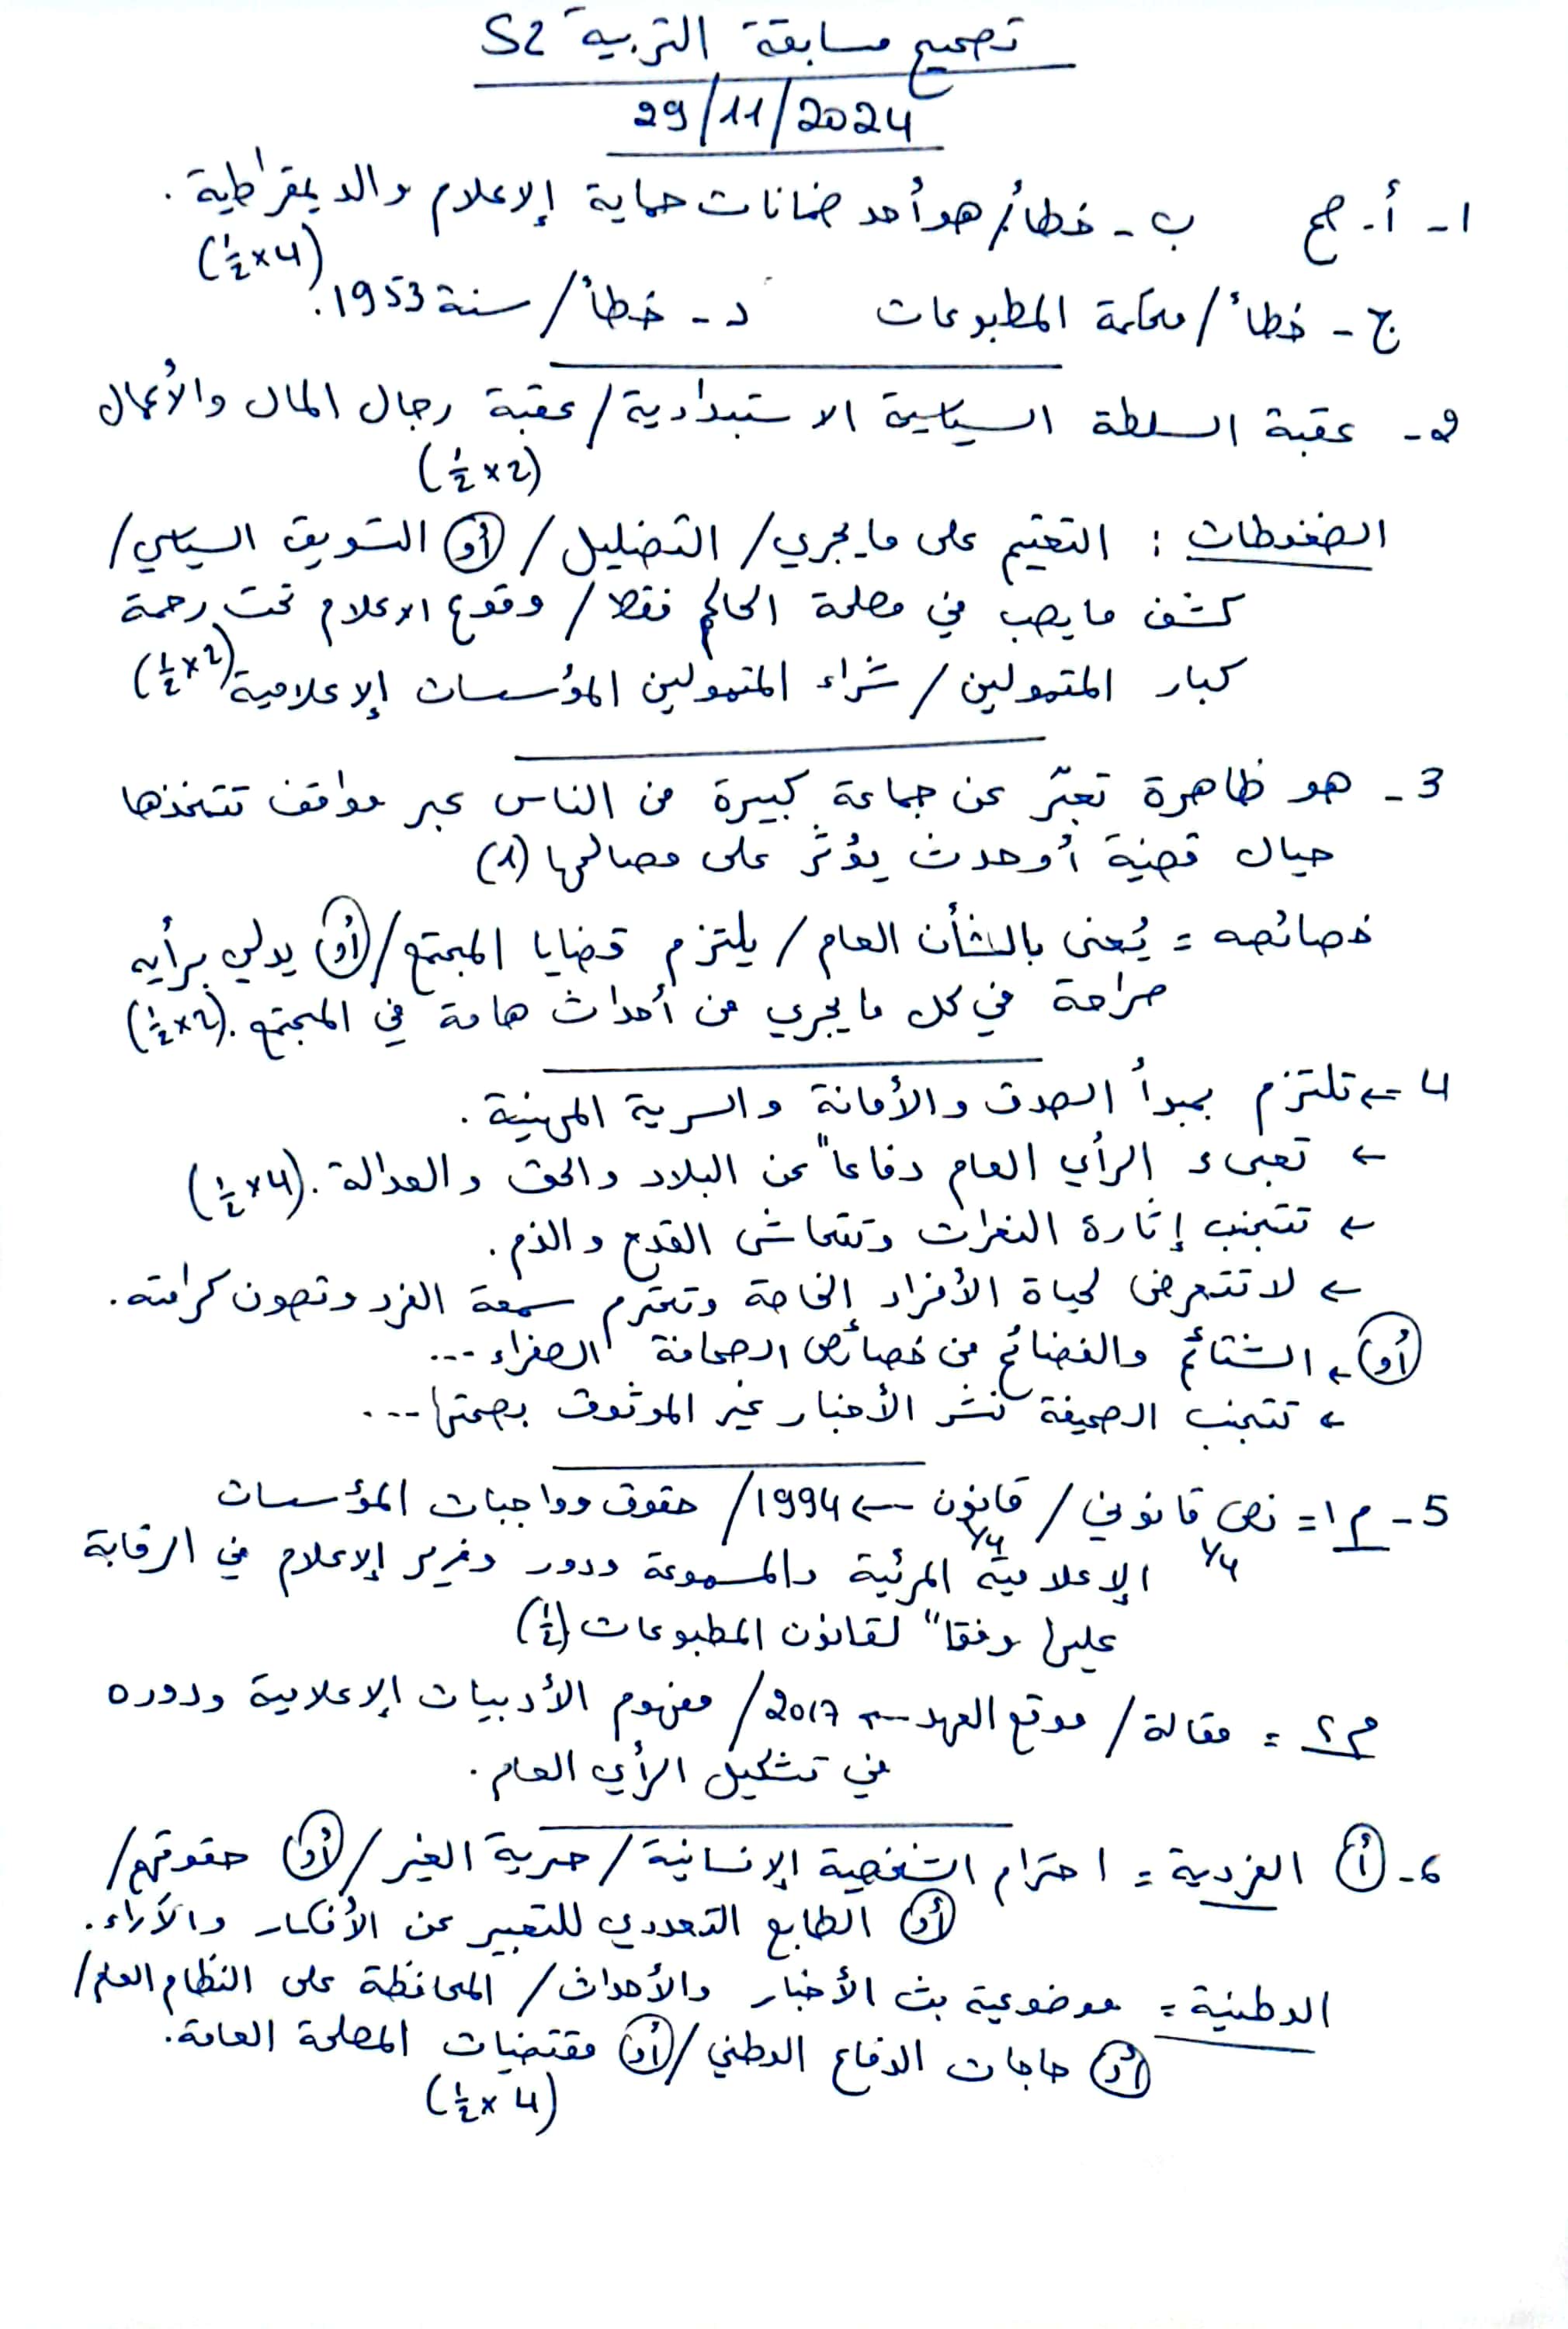 تصحيح مسابقة التربية S2
29/11/2024
1- أ- صح ب- خطأ/ هو أحد ضمانات حماية الإعلام والديمقراطية. (½×4)
ج- خطأ/ محكمة المطبوعات د- خطأ/ سنة 1953.
2- عقبة السلطة السياسية الاستبدادية/ عقبة رجال المال والأعمال
(½×2)
الضغوطات: التعتيم على ما يجري/ التضليل/ أو التسويق السياسي/
كشف ما يصب في مصلحة الحاكم فقط/ وقوع الاعلام تحت رحمة
كبار المتمولين/ شراء المتمولين المؤسسات الإعلامية (½×2)
3- هو ظاهرة تعبّر عن جماعة كبيرة من الناس عبر مواقف تتخذها
حيال قضية أو حدث يؤثر على مصالحها (1)
خصائصه = يُعنى بالشأن العام/ يلتزم قضايا المجتمع/ أو يدلي برأيه
صراحة في كل ما يجري من أحداث هامة في المجتمع. (½×2)
4 ← تلتزم بمبدأ الصدق والأمانة والسرية المهنية.
← تعبىء الرأي العام دفاعاً عن البلاد والحق والعدالة. (½×4)
← تتجنب إثارة النعرات وتتحاشى القدح والذم.
← لا تتعرض لحياة الأفراد الخاصة وتحترم سمعة الفرد وتصون كرامته.
أو ← الشتائم والفضائح من خصائص الصحافة الصفراء...
← تتجنب الصحيفة نشر الأخبار غير الموثوق بصحتها...
5- م1 = نص قانوني/ قانون ← 1994/ حقوق وواجبات المؤسسات
¼ ¼
الإعلامية المرئية والمسموعة ودور وزير الإعلام في الرقابة
عليها وفقاً لقانون المطبوعات (½)
م2 = مقالة/ موقع العهد ← 2017/ مفهوم الأدبيات الإعلامية ودوره
في تشكيل الرأي العام.
6- أ الفردية = احترام الشخصية الإنسانية/ حرية الغير/ أو حقوقهم/
أو الطابع التعددي للتعبير عن الأفكار والآراء.
الوطنية = موضوعية بث الأخبار والأحداث/ المحافظة على النظام العام/
أو حاجات الدفاع الوطني/ أو مقتضيات المصلحة العامة.
(½×4)